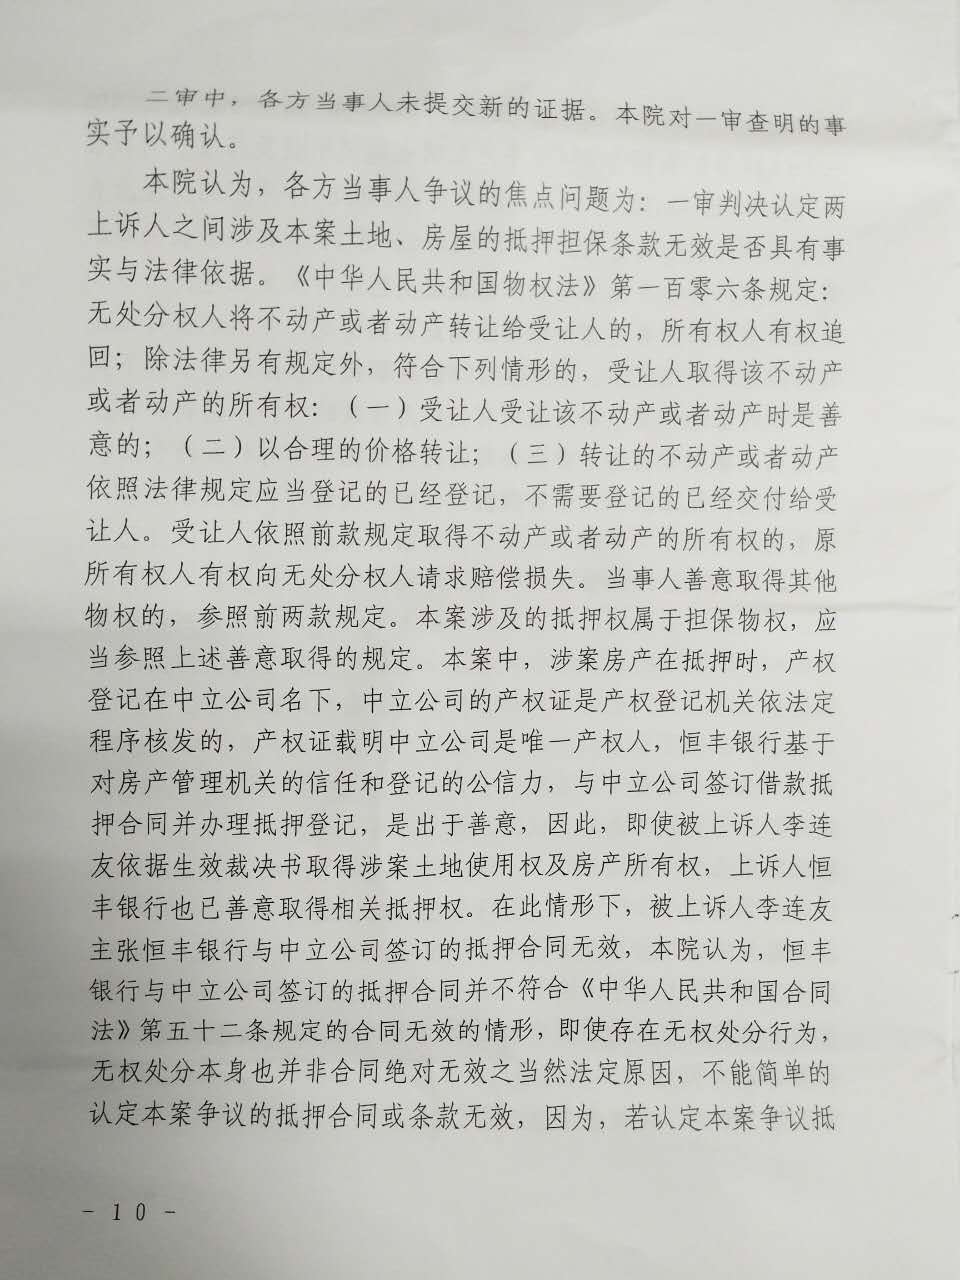 二审中，各方当事人未提交新的证据。本院对一审查明的事
实予以确认。
本院认为，各方当事人争议的焦点问题为：一审判决认定两
上诉人之间涉及本案土地、房屋的抵押担保条款无效是否具有事
实与法律依据。《中华人民共和国物权法》第一百零六条规定：
无处分权人将不动产或者动产转让给受让人的，所有权人有权追
回；除法律另有规定外，符合下列情形的，受让人取得该不动产
或者动产的所有权：（一）受让人受让该不动产或者动产时是善
意的；（二）以合理的价格转让；（三）转让的不动产或者动产
依照法律规定应当登记的已经登记，不需要登记的已经交付给受
让人。受让人依照前款规定取得不动产或者动产的所有权的，原
所有权人有权向无处分权人请求赔偿损失。当事人善意取得其他
物权的，参照前两款规定。本案涉及的抵押权属于担保物权，应
当参照上述善意取得的规定。本案中，涉案房产在抵押时，产权
登记在中立公司名下，中立公司的产权证是产权登记机关依法定
程序核发的，产权证载明中立公司是唯一产权人，恒丰银行基于
对房产管理机关的信任和登记的公信力，与中立公司签订借款抵
押合同并办理抵押登记，是出于善意，因此，即使被上诉人李连
友依据生效裁决书取得涉案土地使用权及房产所有权，上诉人恒
丰银行也已善意取得相关抵押权。在此情形下，被上诉人李连友
主张恒丰银行与中立公司签订的抵押合同无效，本院认为，恒丰
银行与中立公司签订的抵押合同并不符合《中华人民共和国合同
法》第五十二条规定的合同无效的情形，即使存在无权处分行为，
无权处分本身也并非合同绝对无效之当然法定原因，不能简单的
认定本案争议的抵押合同或条款无效，因为，若认定本案争议抵
- 10 -